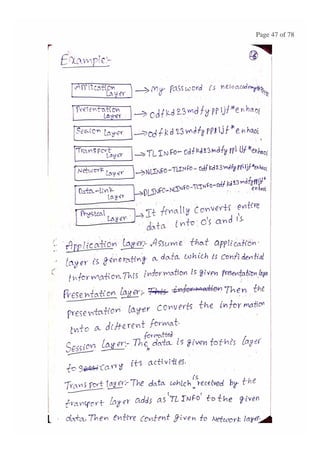 Page 47 of 78
Example:-
Application Layer → My password is
Presentation Layer → odfkd23mdfyppljf*enhaci
Session Layer → odfkd23mdfyppljf*enhaci
Transport Layer → TLINFO-odfkd23mdfyppljf*enhaci
Network Layer → NLINFO-TLINFO-odfkd23mdfyppljf*enhaci
Data-link Layer → DLINFO-NLINFO-TLINFO-odfkd23mdfyppljf*
Physical Layer → It finally converts entire
data into 0's and 1's
Application layer:- Assume that application-
layer is generating a data which is confidential
information. This information is given presentation layer
Presentation layer:- This information Then the
presentation layer converts the information
into a different format.
Session layer:- The formatted data is given to this layer
to carry its activities.
Transport layer:- The data which is received by the
transport layer adds as 'TL INFO' to the given
data. Then entire content given to Network layer